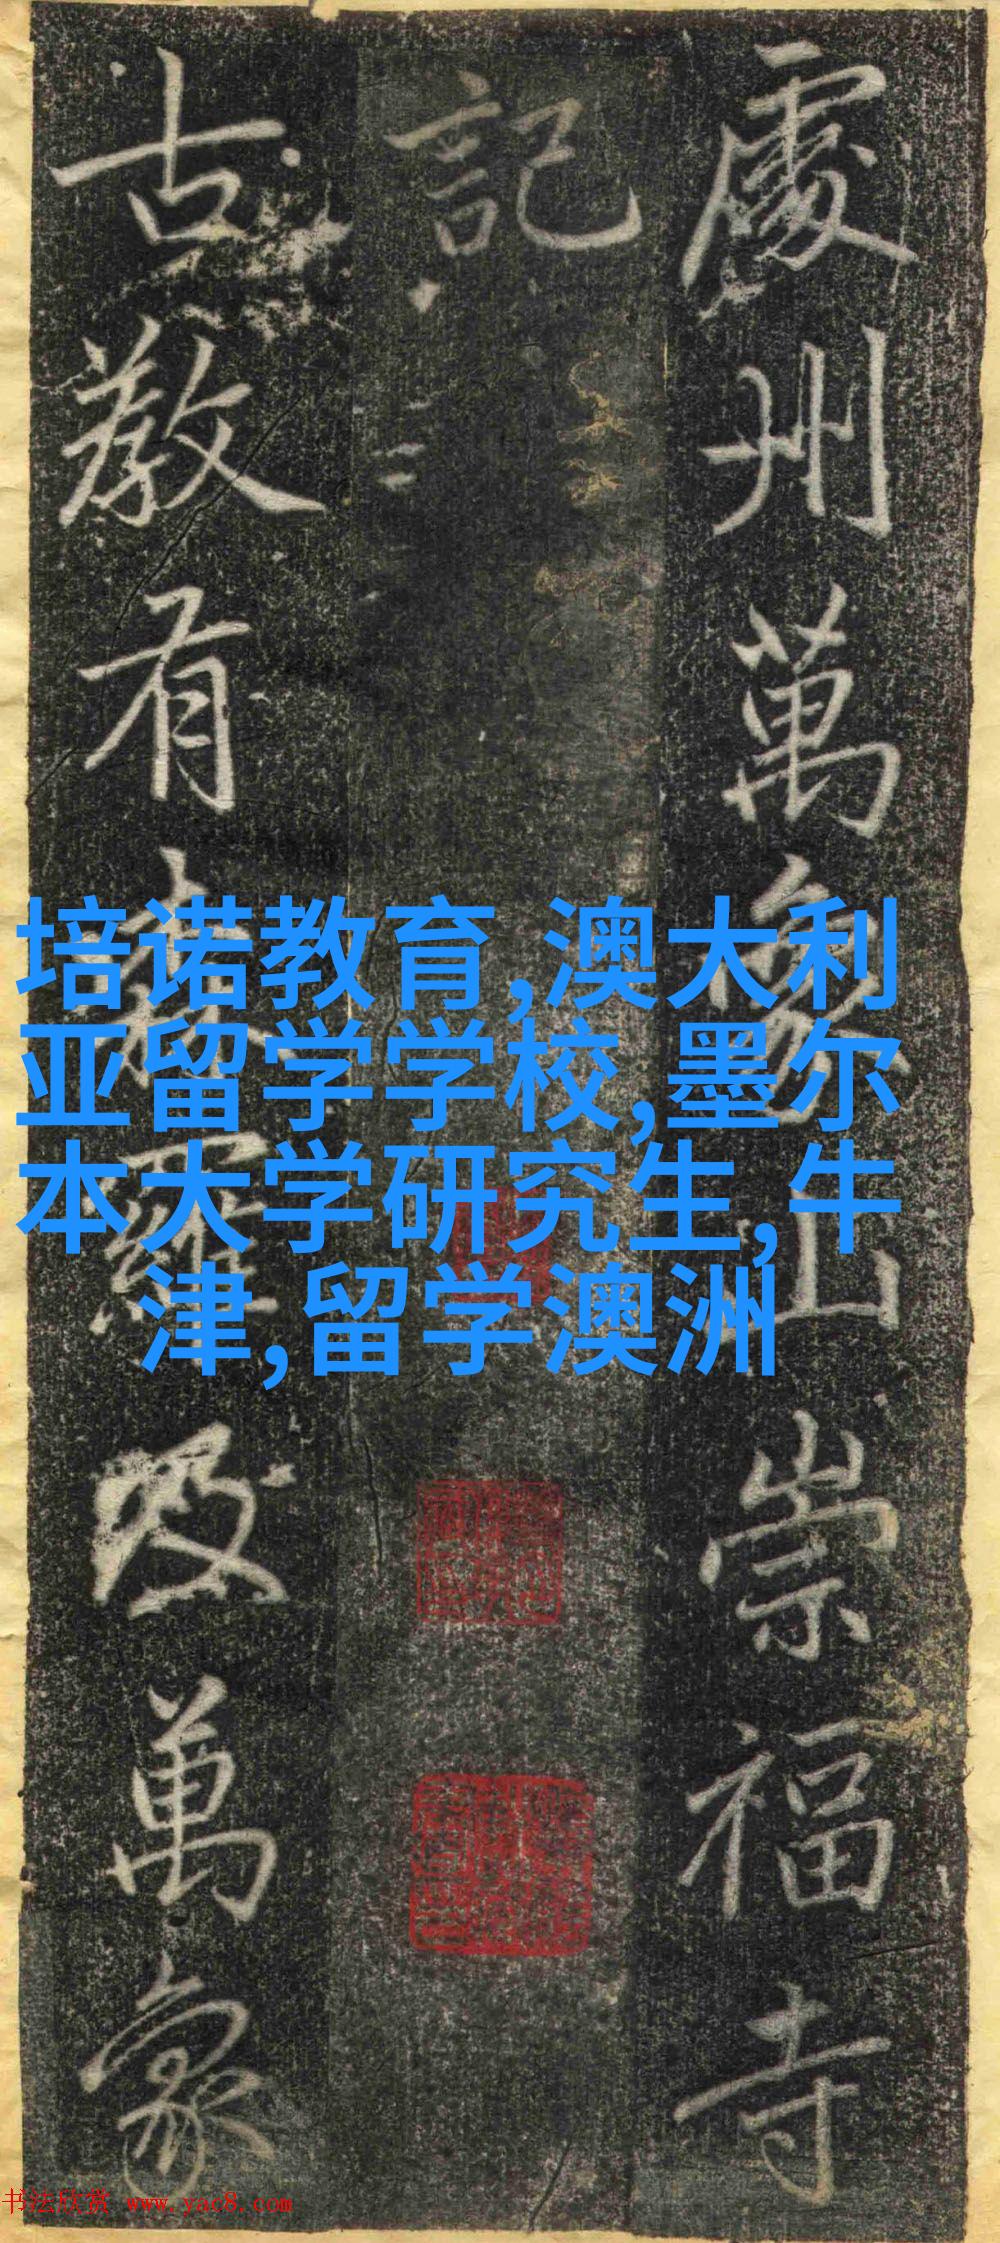 處州萬象山崇福寺
記
古教有森羅及萬象
培诺教育,澳大利
亚留学学校,墨尔
本大学研究生,牛
津,留学澳洲
书法欣赏 www.yac8.com